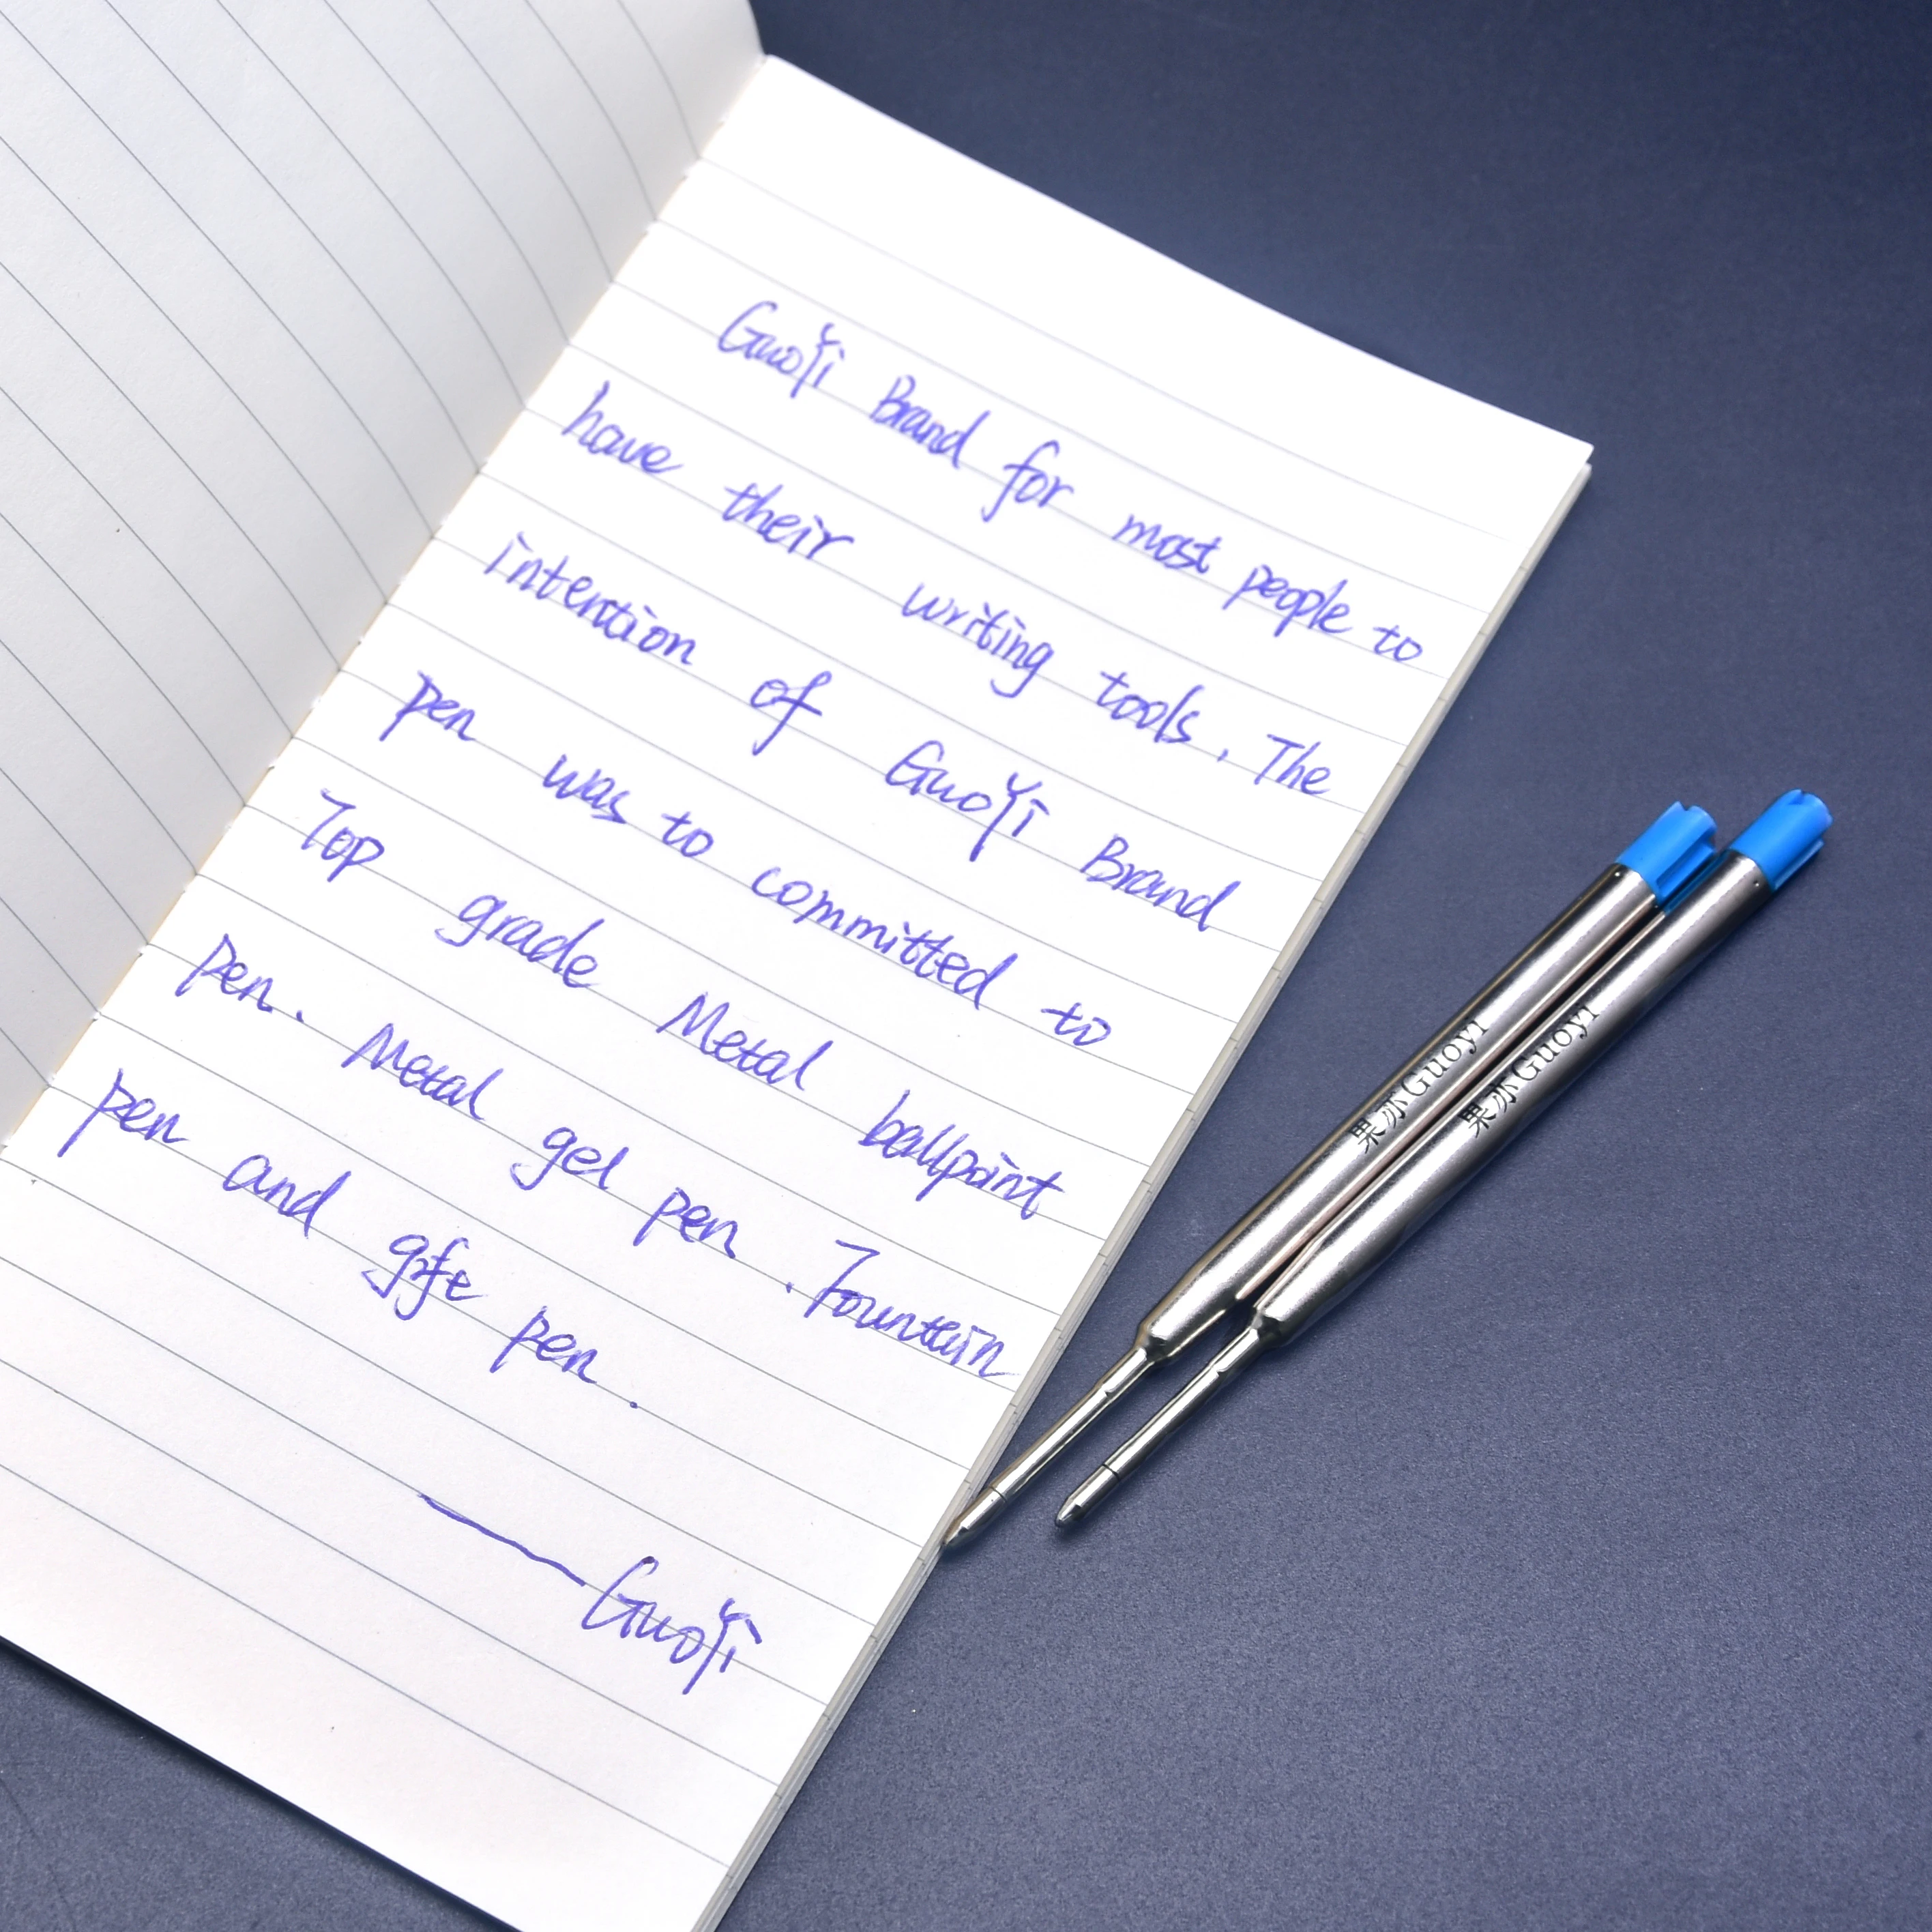 GuoYi Brand for most people to
have their writing tools. The
intention of GuoYi Brand
pen was to committed to
Top grade Metal ballpoint
pen. Metal gel pen. Fountain
pen and gife pen.
— GuoYi
果苏Guoyi
果苏Guoyi